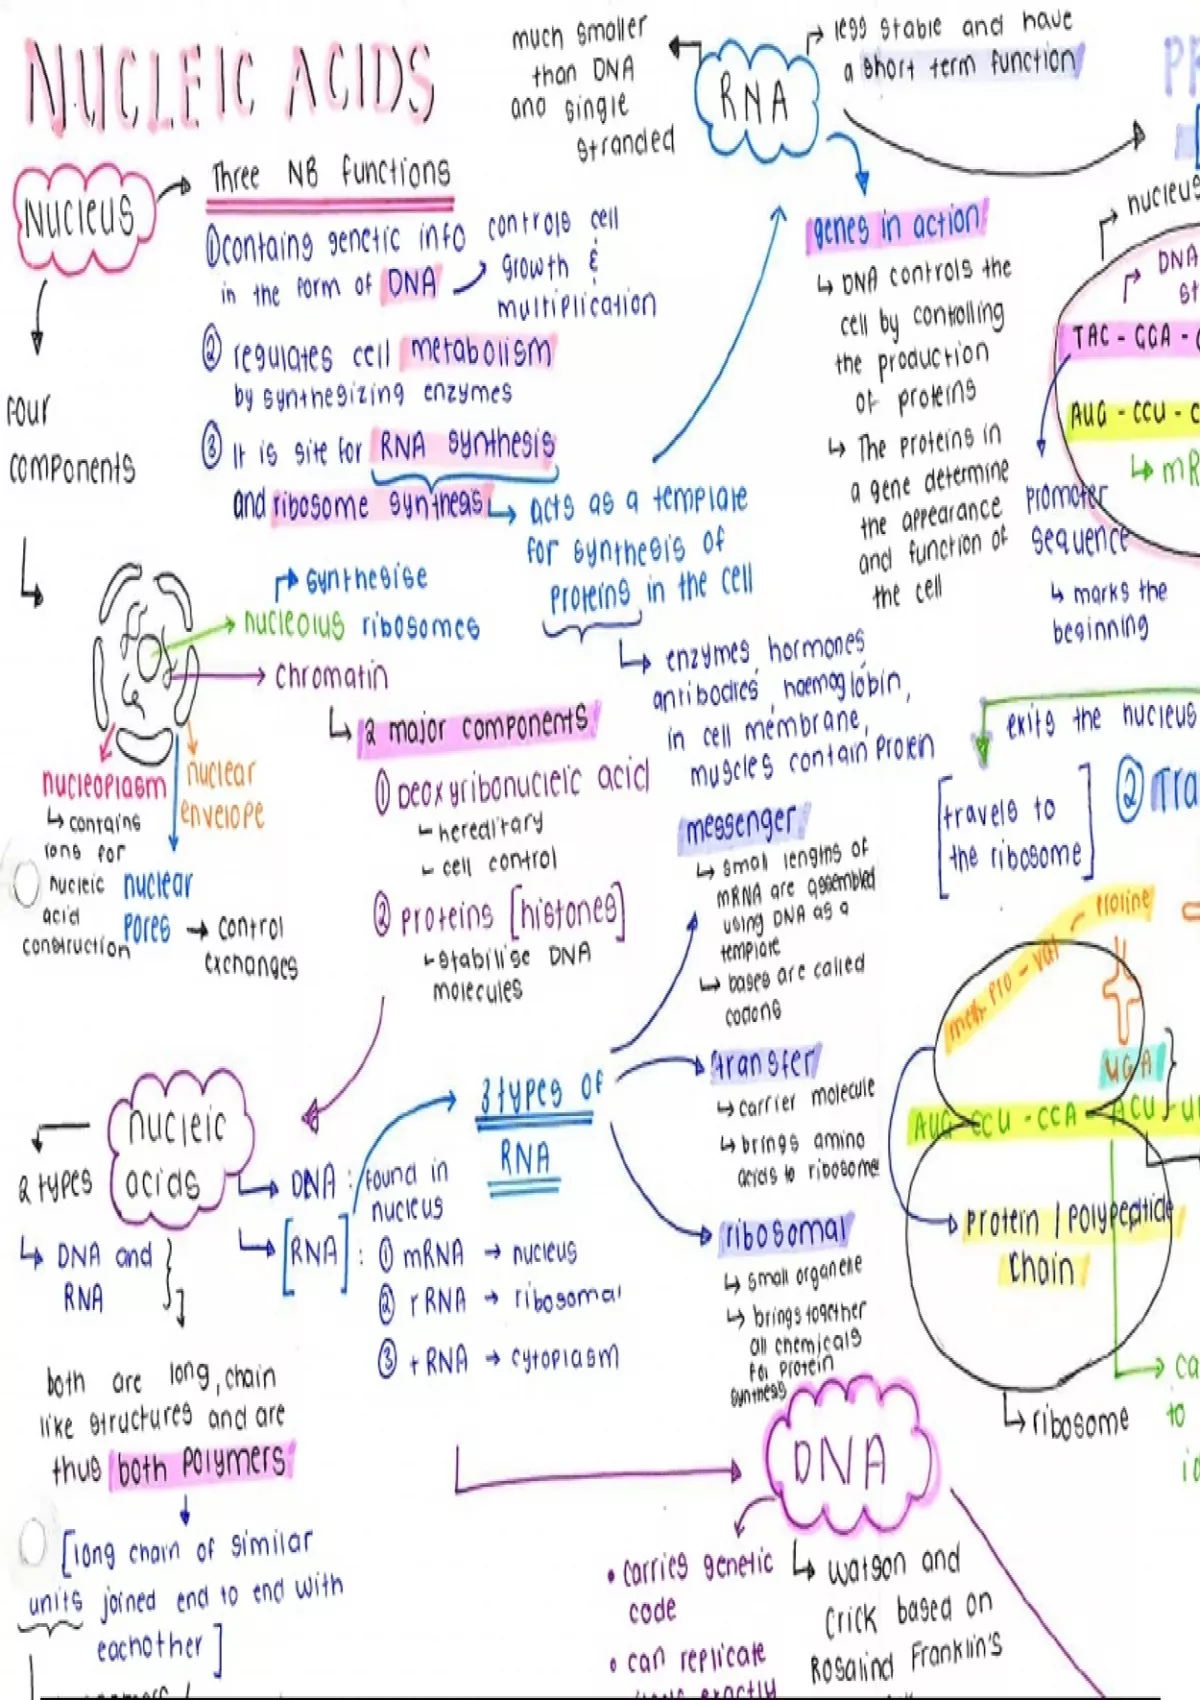 NUCLEIC ACIDS
Nucleus
Three NB functions
①contains genetic info
in the form of DNA
controls cell
growth &
multiplication
② regulates cell metabolism
by synthesizing enzymes
③ It is site for RNA synthesis
and ribosome synthesis
acts as a template
for synthesis of
proteins in the cell
enzymes, hormones,
antibodies, haemoglobin,
in cell membrane,
muscles contain protein
four
components
synthesise
nucleolus ribosomes
chromatin
2 major components
① Deoxyribonucleic acid
hereditary
cell control
② proteins [histones]
stabilise DNA
molecules
nucleoplasm
contains
ions for
nucleic
acid
construction
nuclear
envelope
nuclear
pores → control
exchanges
much smaller
than DNA
and single
stranded
RNA
less stable and have
a short term function
genes in action
DNA controls the
cell by controlling
the production
of proteins
The proteins in
a gene determine
the appearance
and function of
the cell
PR
nucleus
DNA
st
TAC - GGA -
AUG - CCU - C
mR
promoter
sequence
marks the
beginning
exits the nucleus
[travels to
the ribosome]
② Tra
messenger
small lengths of
mRNA are assembled
using DNA as a
template
bases are called
codons
transfer
carrier molecule
brings amino
acids to ribosome
ribosomal
small organelle
brings together
all chemicals
for protein
synthesis
3 types of
RNA
nucleic
acids
2 types
DNA and
RNA
DNA : found in
nucleus
[RNA] : ① mRNA → nucleus
② rRNA → ribosomal
③ tRNA → cytoplasm
both are long, chain
like structures and are
thus both polymers
[long chain of similar
units joined end to end with
eachother]
proline
meth - pro - val
UGA
AUG - CCU - CCA - ACU - U
protein / polypeptide
chain
ribosome
ca
to
id
DNA
• carries genetic
code
• can replicate
exactly
Watson and
Crick based on
Rosalind Franklin's